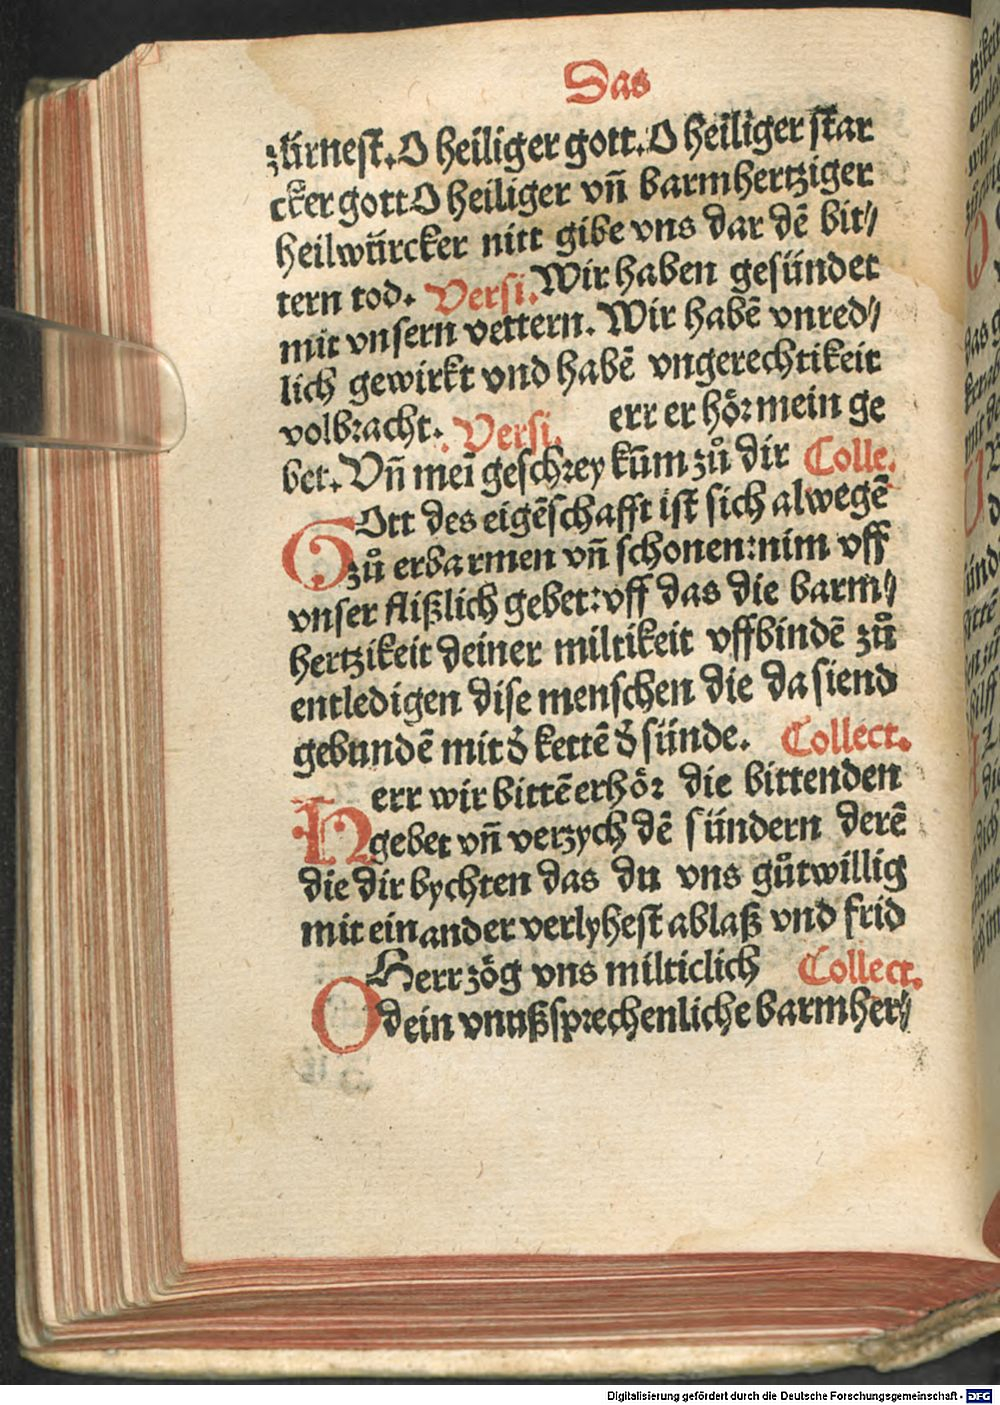 Das
zürnest. O heiliger gott. O heiliger star
cker gott O heiliger vn̄ barmhertziger
heilwürcker nitt gibe vns dar dē bit⸗
tern tod. Versi. Wir haben gesündet
mit vnsern vettern. Wir habē vnred⸗
lich gewirkt vnd habē vngerechtikeit
volbracht. Versi. err er hör mein ge
bet. Vn̄ mei̅ geschrey kūm zů dir Colle.
GOtt des eigēschafft ist sich alwegē
zů erbarmen vn̄ schonen: nim vff
vnser flißlich gebet: vff das die barm⸗
hertzikeit deiner miltikeit vffbindē zů
entledigen dise menschen die da siend
gebundē mit d̄ kettē d̄ sünde. Collect.
Herr wir bittē erhör die bittenden
gebet vn̄ verzych dē sündern derē
die dir bychten das du vns gůtwillig
mit einander verlyhest ablaß vnd frid
O Herr zög vns milticlich Collect.
dein vnußsprechenliche barmher⸗
Digitalisierung gefördert durch die Deutsche Forschungsgemeinschaft - DFG